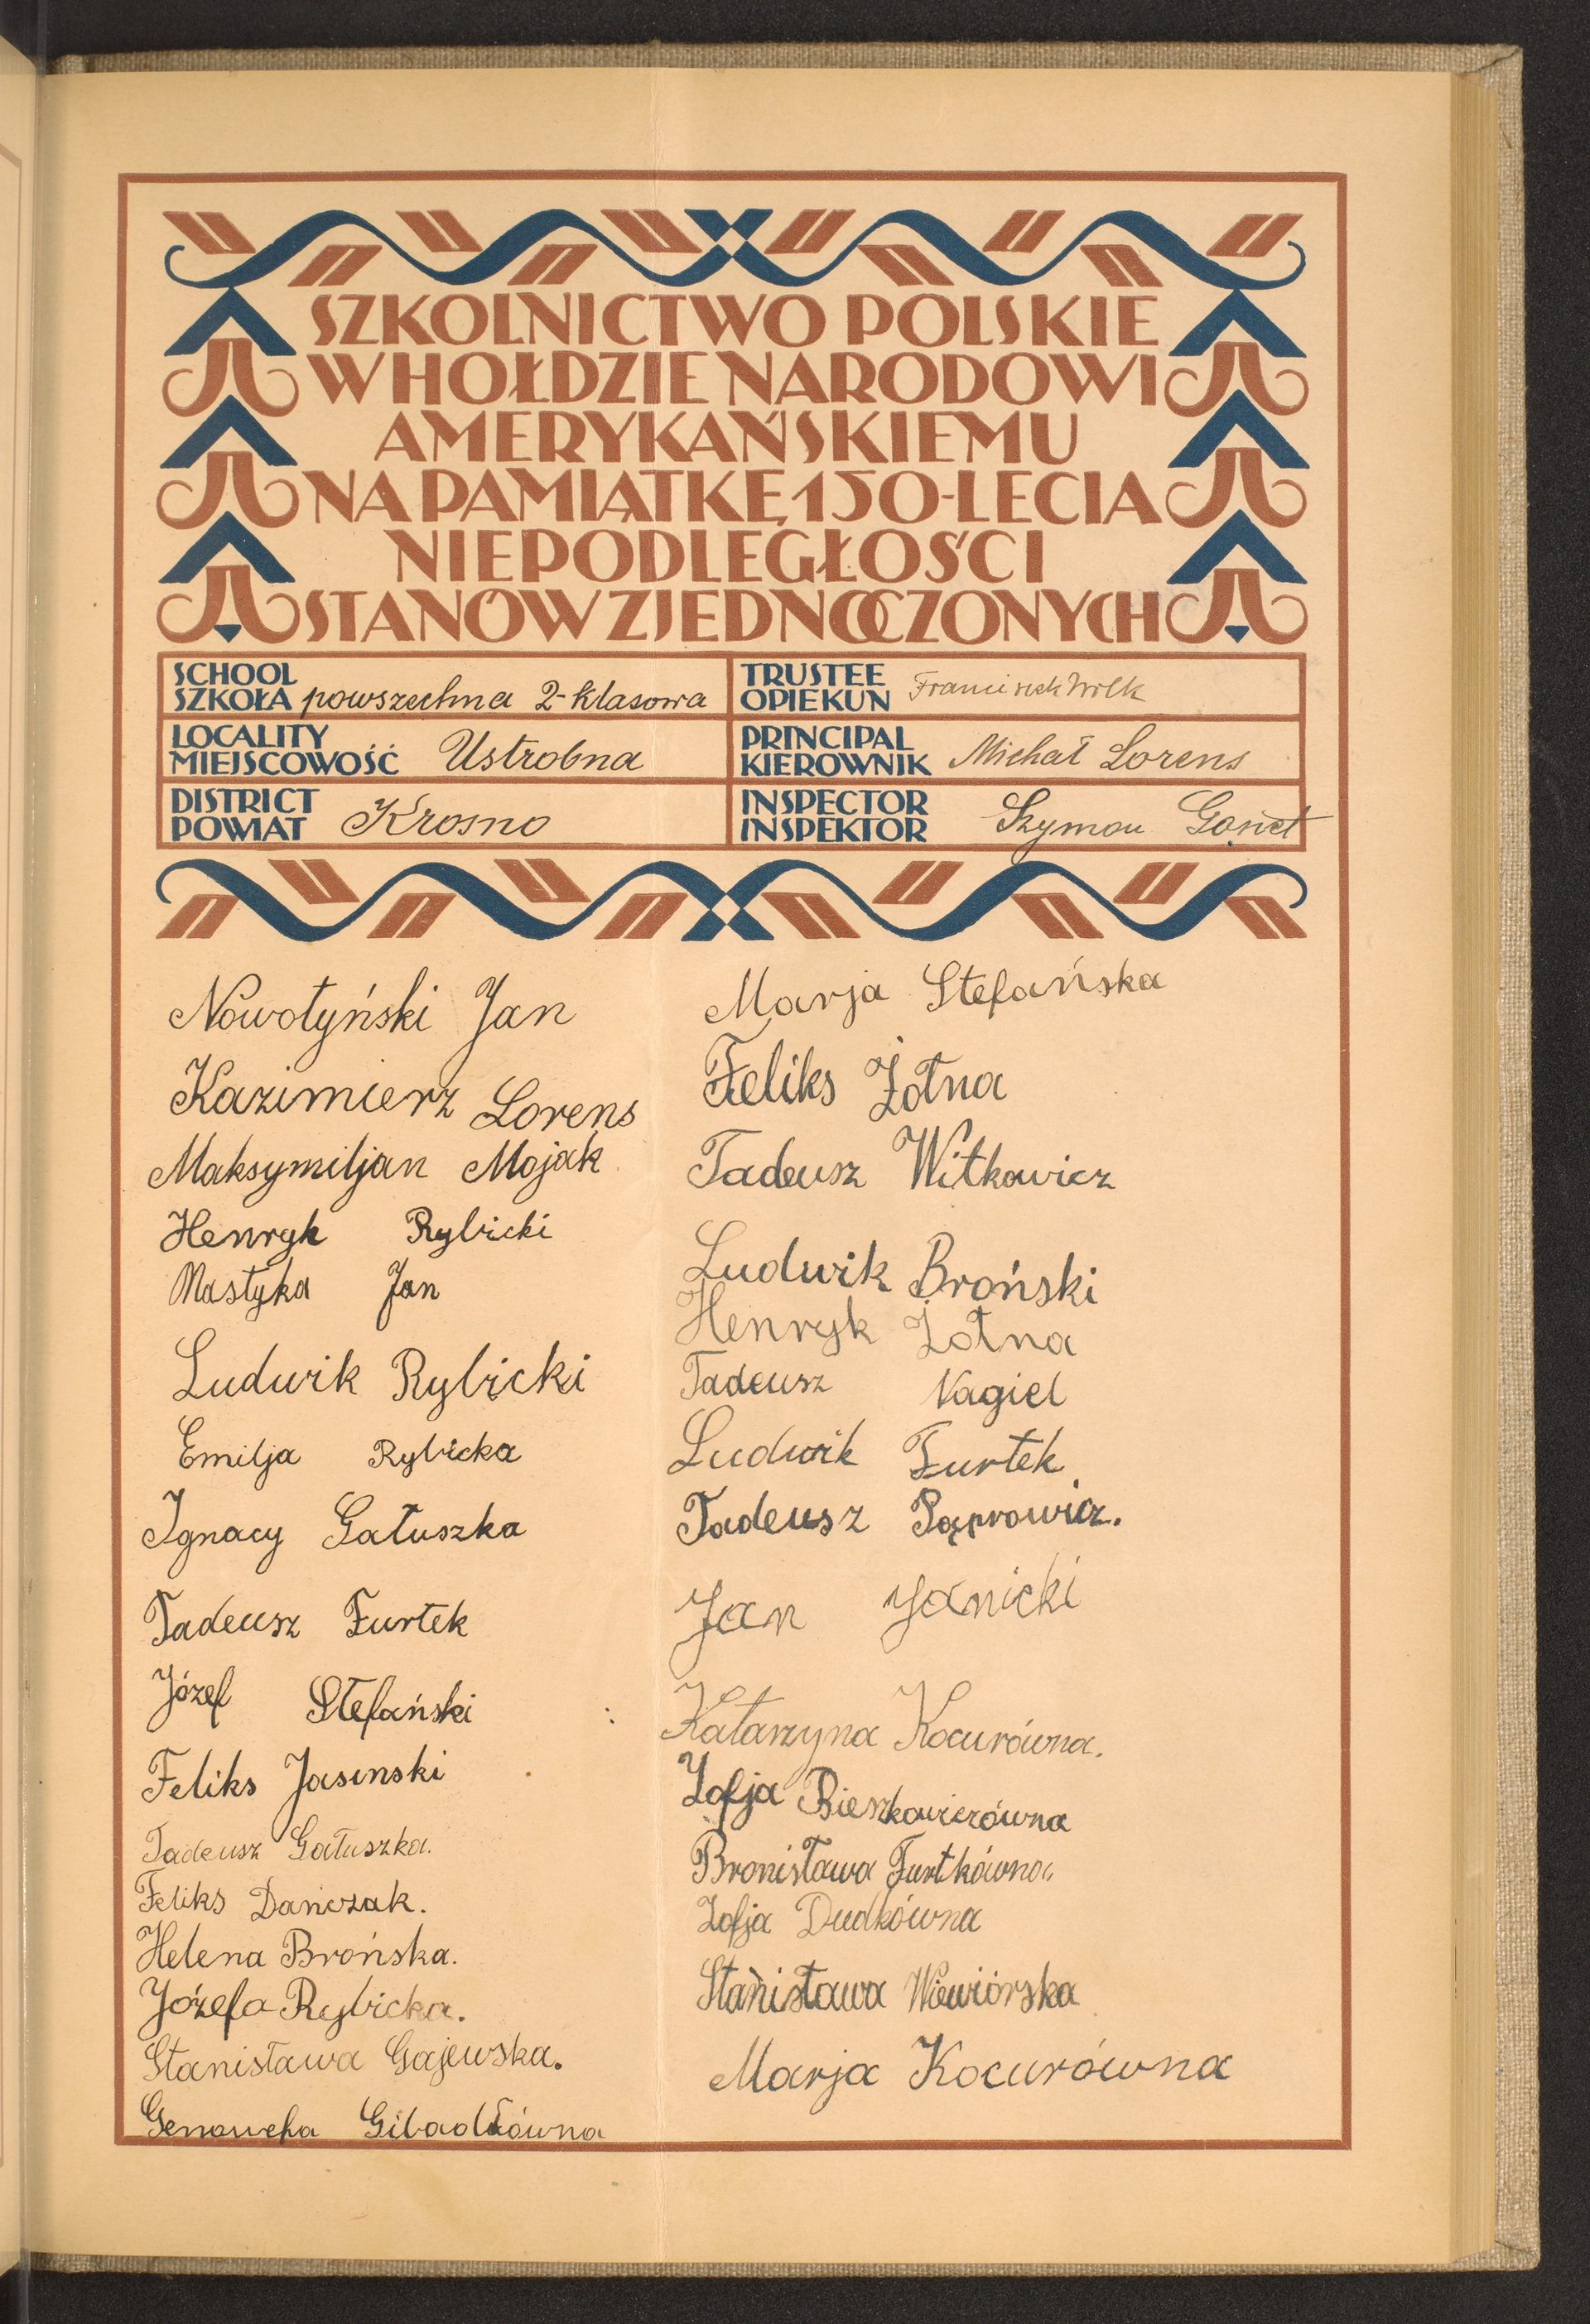 SZKOLNICTWO POLSKIE
W HOŁDZIE NARODOWI
AMERYKAŃSKIEMU
NA PAMIĄTKĘ 150-LECIA
NIEPODLEGŁOŚCI
STANÓW ZJEDNOCZONYCH
SCHOOL
SZKOŁA powszechna 2-klasowa
TRUSTEE
OPIEKUN Franciszek Wilk
LOCALITY
MIEJSCOWOŚĆ Ustrobna
PRINCIPAL
KIEROWNIK Michał Lorens
DISTRICT
POWIAT Krosno
INSPECTOR
INSPEKTOR Szymon Gonet
Nowotyński Jan
Kazimierz Lorens
Maksymiljan Mojak
Henryk Rybicki
Mastyka Jan
Ludwik Rybicki
Emilja Rybicka
Ignacy Gałuszka
Tadeusz Furtek
Józef Stefański
Feliks Jasinski
Tadeusz Gałuszka.
Feliks Dańczak.
Helena Brońska.
Józefa Rybicka.
Stanisława Gajewska.
Genowefa Gibadłówna
Marja Stefańska
Feliks Żołna
Tadeusz Witkowicz
Ludwik Broński
Henryk Żołna
Tadeusz Nagiel
Ludwik Furtek
Tadeusz
Jan Janicki
Katarzyna Kocurówna.
Zofja Bieszkowiczówna
Bronisława Furtkówna
Zofja Dudkówna
Stanisława Wiewiórska
Marja Kocurówna